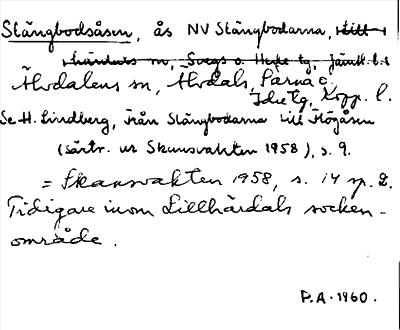 Stängbodsåsen, ås NV Stängbodarna, Lill-
härdals sn, Svegs o. Hede tg, Jämtl. l.
Älvdalens sn, Älvdals, Särna o.
Idre tg, Kopp. l.
Se H. Lindberg, Från Stängbodarna till Högåsen
(särtr. ur Skansvakten 1958), s. 9.
= Skansvakten 1958, s. 14 sp. 2.
Tidigare inom Lillhärdals socken-
område.
P.A. 1960.